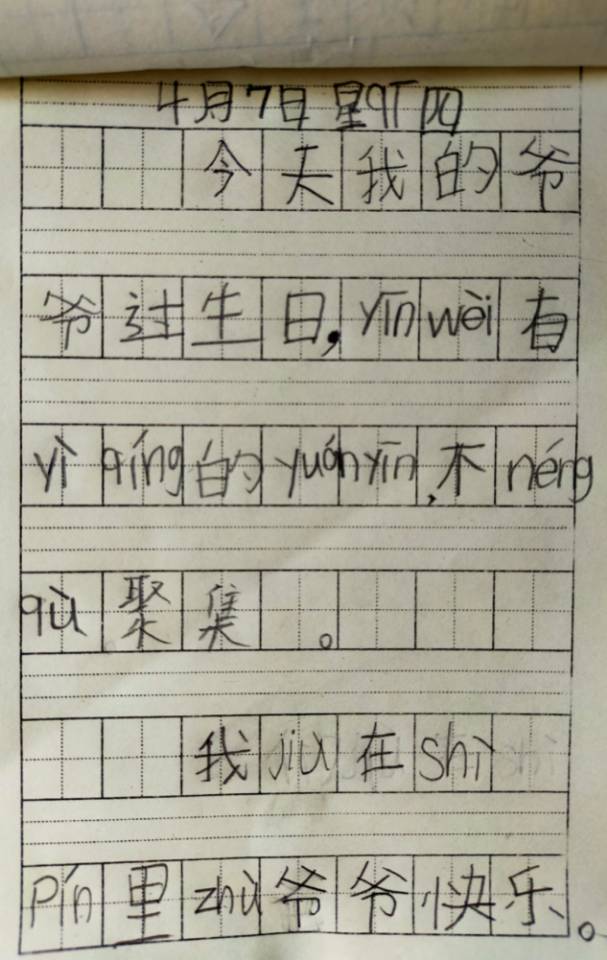 4月7日星qī四
今天我的爷
爷过生日,yīnwèi有
yì qíng的yuányīn,不néng
qù聚集。
我jiù在shì
pín里zhù爷爷快乐。